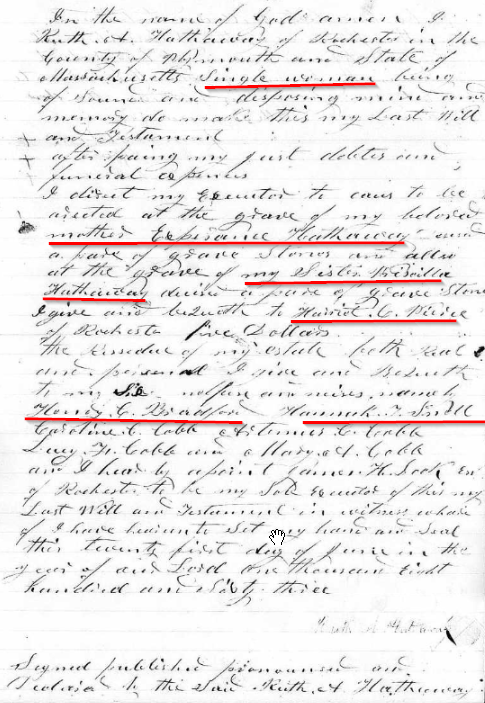 In the name of God amen I
Ruth A. Hathaway of Rochester in the
County of Plymouth and State of
Massachusetts Single woman being
of sound and disposing mind and
memory do make this my Last Will
and Testament
after paing my just debts and
funeral expenses
I direct my Executor to caus to be
erected at the grave of my beloved
mother Experance Hathaway and
a pare of grave Stones and also
at the grave of my Sister Priscilla
Hathaway a pare of grave Stones
I give and bequeth to Harriet C. Pierce
of Rochester five Dollars
the Ressedue of my estate both Real &
and personal I give and Bequeth
to my nephews and nieces, namely
Henry C. Bradford Hannah T.
Caroline C. Cobb Artemus C. Cobb
Lucy F. Cobb and Mary A. Cobb
and I hear by apoint James H. Look
of Rochester to be my Sole Executor of this my
Last Will and Testament in witness whare
of I have hearunto Set my hand and Seal
this twenty first day of June in the
year of our Lord one thousand Eight
hundred and Sixty three
Ruth A Hathaway
Signed published pronounced and
by the Said Ruth A Hathaway